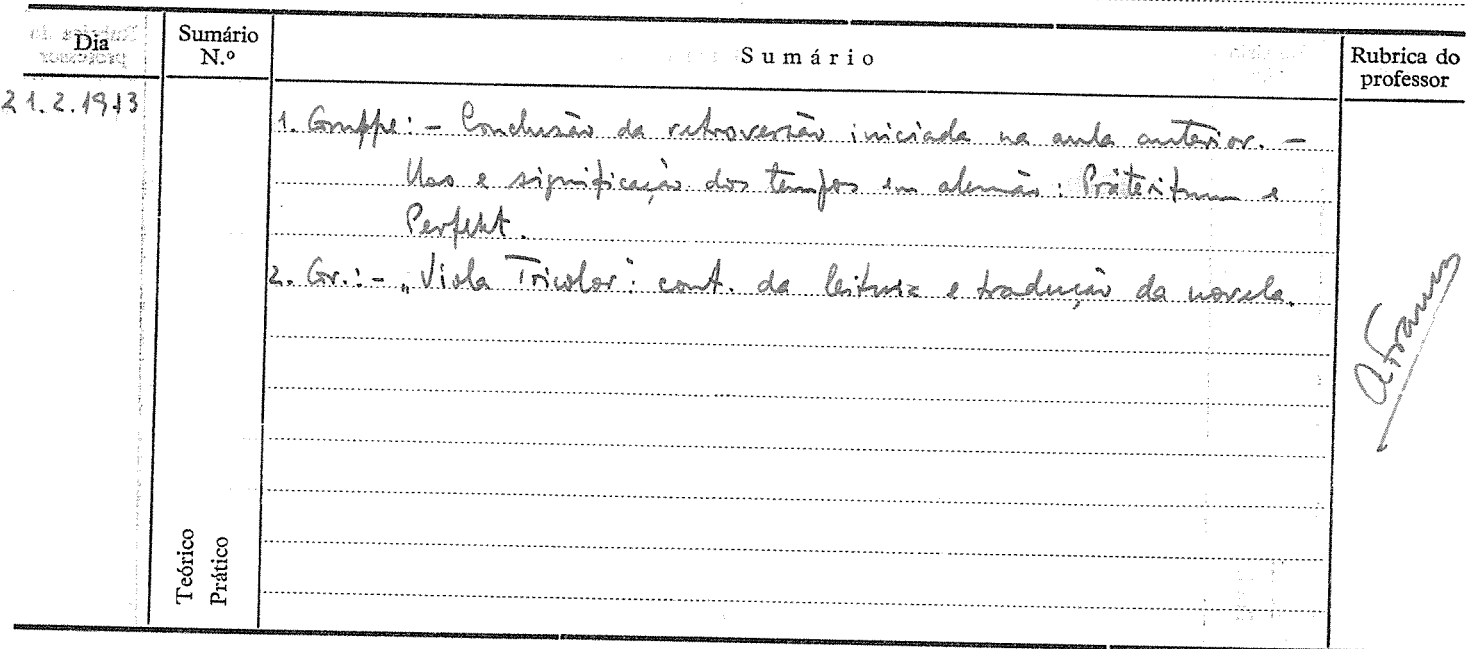 Dia
Sumário N.º
Sumário
Rubrica do professor
21.2.1973
1. Gruppe: - Conclusão da retroversão iniciada na aula anterior. -
Uso e significação dos tempos em alemão: Präteritum e
Perfekt.
2. Gr.: - „Viola Tricolor": cont. da leitura e tradução da novela.
Teórico
Prático